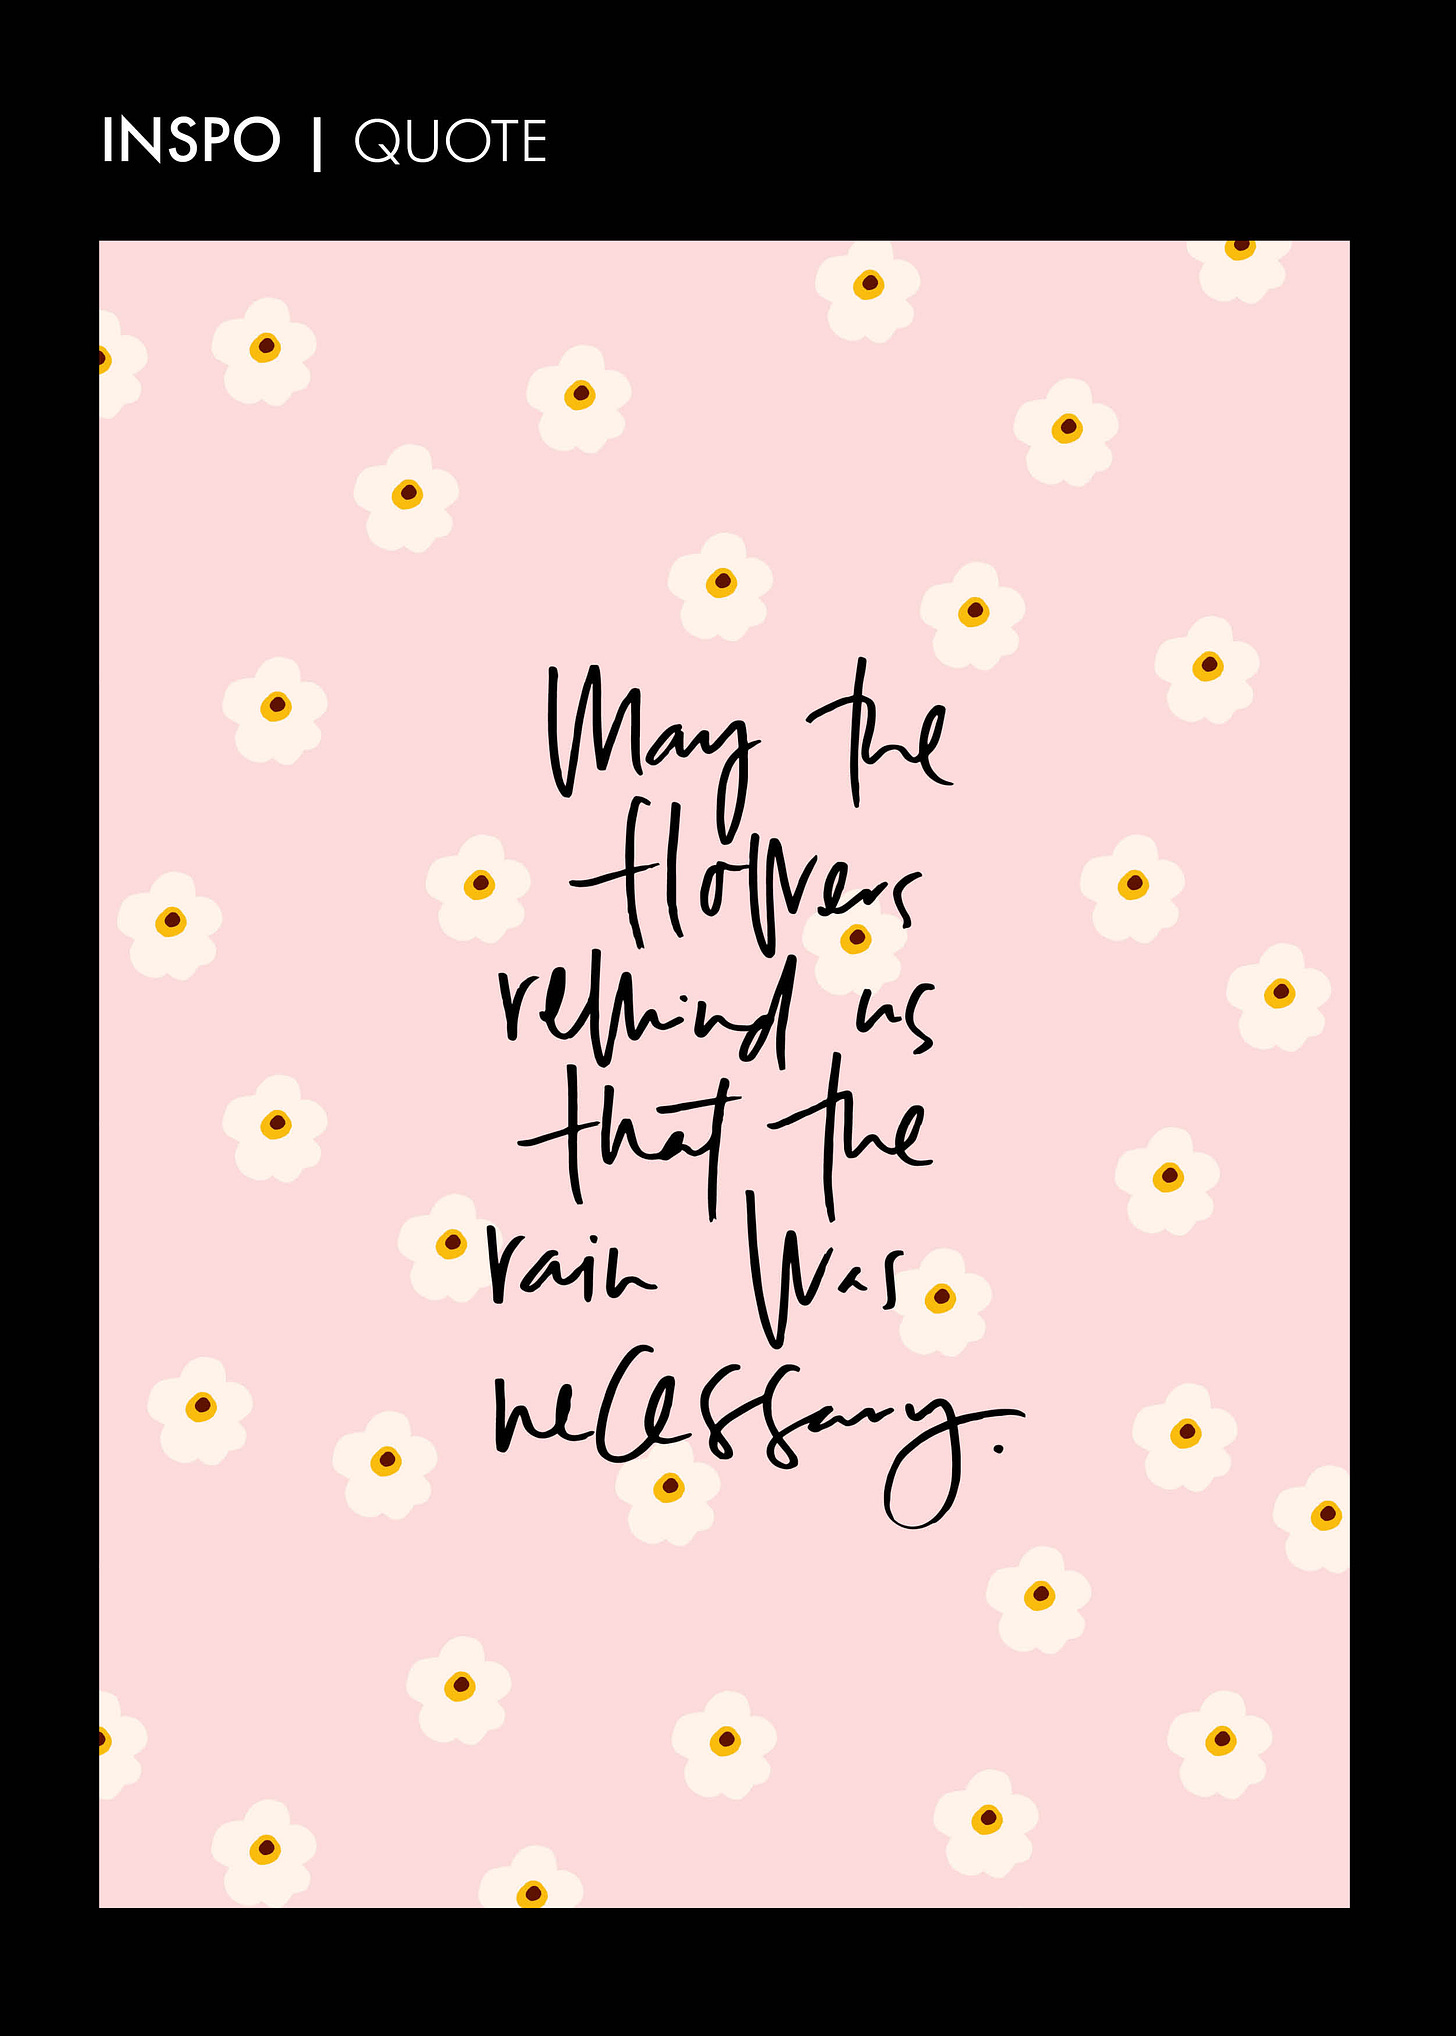 INSPO | QUOTE
May the
flowers
remind us
that the
rain was
necessary.